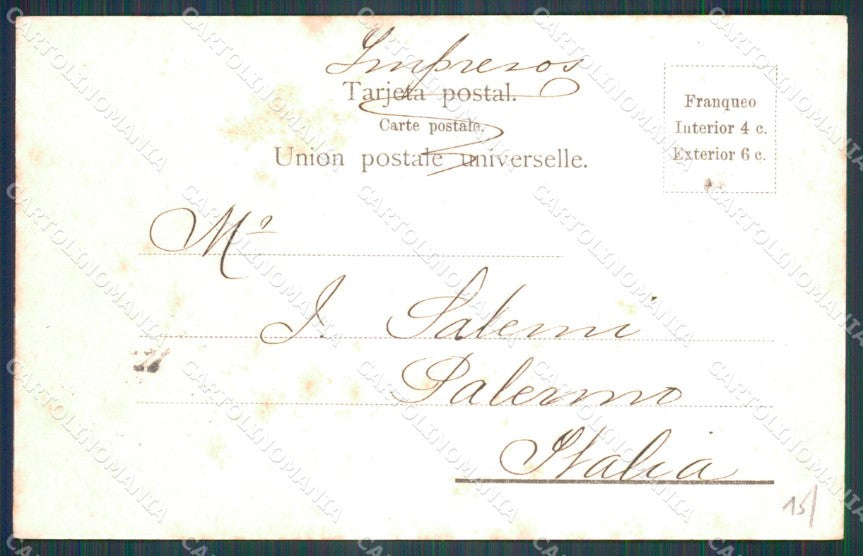 Impresos
Tarjeta postal.
Carte postale.
Union postale universelle.
Franqueo
Interior 4 c.
Exterior 6 c.
Mª
J. Salemi
Palermo
Italia
15/
CARTOLINOMANIA